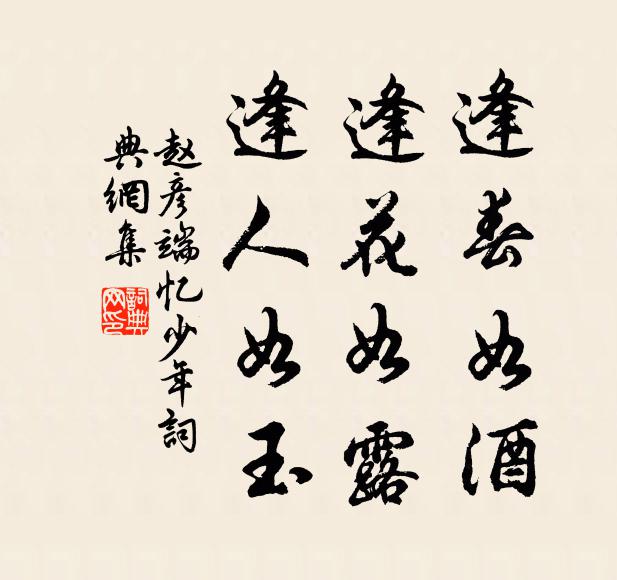 逢春如酒
逢花如露
逢人如玉
赵彦端忆少年詞
典網集
詞典
网印